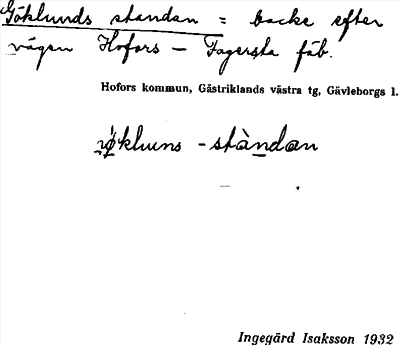 Göklunds standan = backe efter
vägen Hofors – Fagersta fäb.
Hofors kommun, Gästriklands västra tg, Gävleborgs l.
-stàndan
Ingegärd Isaksson 1932